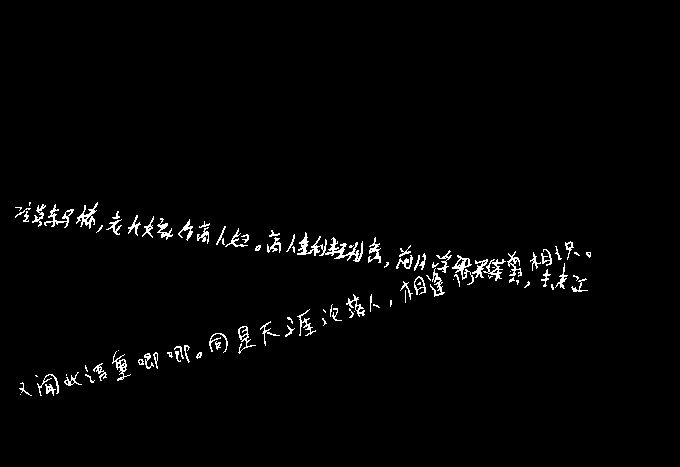 冷落车马稀，老大嫁作商人妇。商人重利轻别离，前月浮梁买茶去，去来江
又闻此语重唧唧。同是天涯沦落人，相逢何必曾相识。